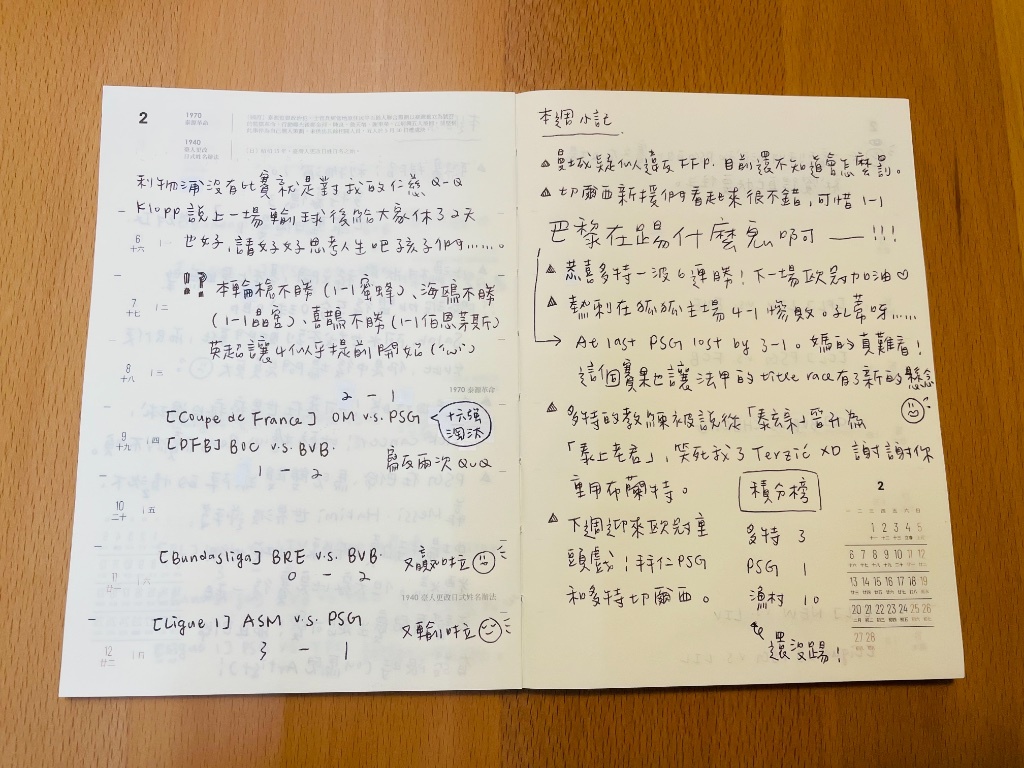 2
1970
泰源革命
1940
臺人更改
日式姓名辦法
利物浦沒有比賽就是對我的仁慈 Q-Q
Klopp 說上一場輸球後給大家休了2天
6 一
十六
也好,請好好思考人生吧孩子們……。
!? 本輪槍不勝(1-1蜜蜂)、海鷗不勝
7 二
十七
(1-1晶宮)、喜鵲不勝(1-1伯恩茅斯)
英超讓4似乎提前開始(

8 三
十八
1970 泰源革命
2 - 1
[Coupe de France] OM v.s. PSG
十六強
淘汰
9 四
十九
[DFB] BOC v.s. BVB.
1 - 2
烏瓜兩次 QuQ
10 五
二十
[Bundasliga] BRE v.s. BVB.
0 - 2
又贏啦
11 六
1940 臺人更改日式姓名辦法
[Ligue 1] ASM v.s. PSG
3 - 1
又輸啦
12 日
廿二
本週小記.
△ 曼城疑似違反 FFP. 目前還不知道會怎麼罰。
△ 切爾西新援們看起來很不錯,可惜 1-1
巴黎在踢什麼鬼啊——!!!
△ 恭喜多特一波6連勝!下一場歐冠加油♡
△ 熱刺在狐狐主場 4-1 慘敗。孔蒂呀……
→ At last PSG lost by 3-1。媽的真難看!
這個賽果也讓法甲的 title race 有了新的懸念
△ 多特的教練被說從「泰玄乎」晉升為
「泰上老君」,笑死我了 Terzic XD 謝謝你
重用布蘭特。
積分榜
△ 下週迎來歐冠重
頭戲:拜仁PSG
和多特切爾西。
多特 3
PSG 1
漁村 10
還沒踢!
2
一 二 三 四 五 六 日
1 2 3 4 5
6 7 8 9 10 11 12
13 14 15 16 17 18 19
20 21 22 23 24 25 26
27 28